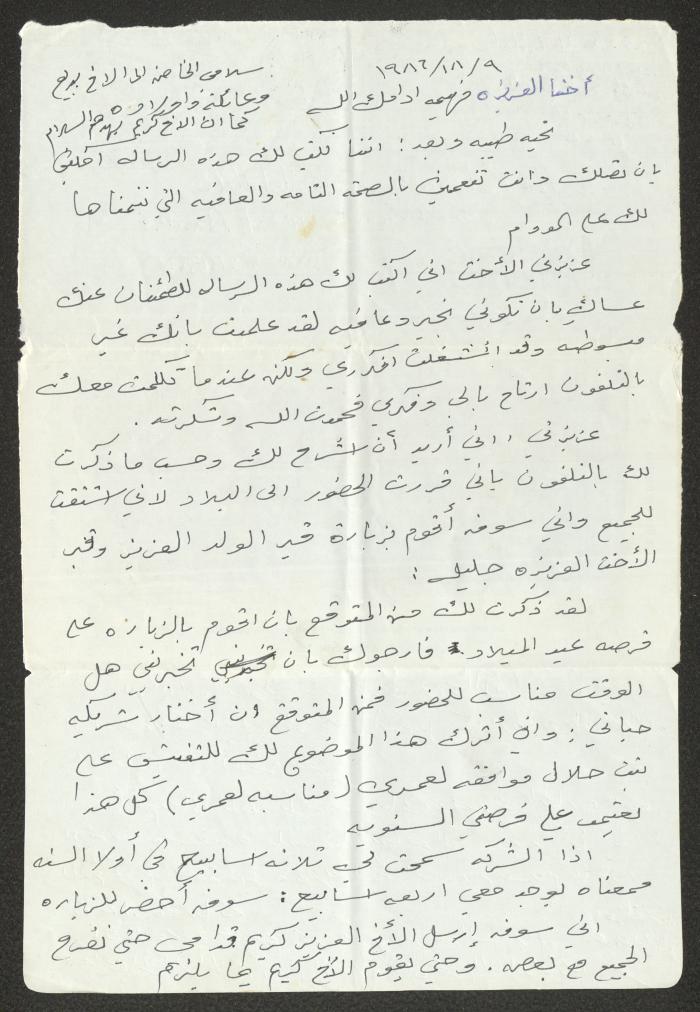 ١٩٨٦/١٨/٩
سلامي الخاص الى الاخ بديع
وعائلته واولاده
كما ان الاخ كريم يهديكم السلام
أختنا العزيزه فهيمه ادامك الله
تحيه طيبه وبعد: اننا نكتب لك هذه الرساله
بان تصلك وانت تنعمين بالصحه التامه والعافيه التي نتمناها
لك على الدوام
عزيزتي الأخت اني اكتب لك هذه الرساله للطمئنان عنك
عساكي بان تكوني بخير وعافيه لقد علمت بانك غير
مبسوطه وقد انشغلت افكاري ولكن عندما تكلمت معك
بالتلفون ارتاح بالي وفكري فحمدت الله وشكرته.
عزيزتي، اني أريد أن اشرح لك وحسب ما ذكرت
لك بالتلفون باني قررت الحضور الى البلاد لاني اشتقت
للجميع واني سوف أقوم بزيارة قبر الولد العزيز وقبر
الأخت العزيزه جليله:
لقد ذكرت لك من المتوقع بان اقوم بالزياره على
فرصه عيد الميلاد فارجوك بان تخبريني هل
الوقت مناسب للحضور فمن المتوقع ان أختار شريكه
حياتي: واني أترك هذا الموضوع لك للتفتيش على
بنت حلال موافقه لعمري (مناسبه لعمري) كل هذا
يعتمد على فرصتي السنويه
اذا الشركه سمحت لي ثلاثه اسابيع في أولا السنه
فمعناه يوجد معي اربعه اسابيع: سوف أحضر للزياره
اني سوف إرسل الأخ العزيز كريم قدامي حتي نفرح
الجميع مع بعض. وحتي يقوم الاخ كريم بما يلزم